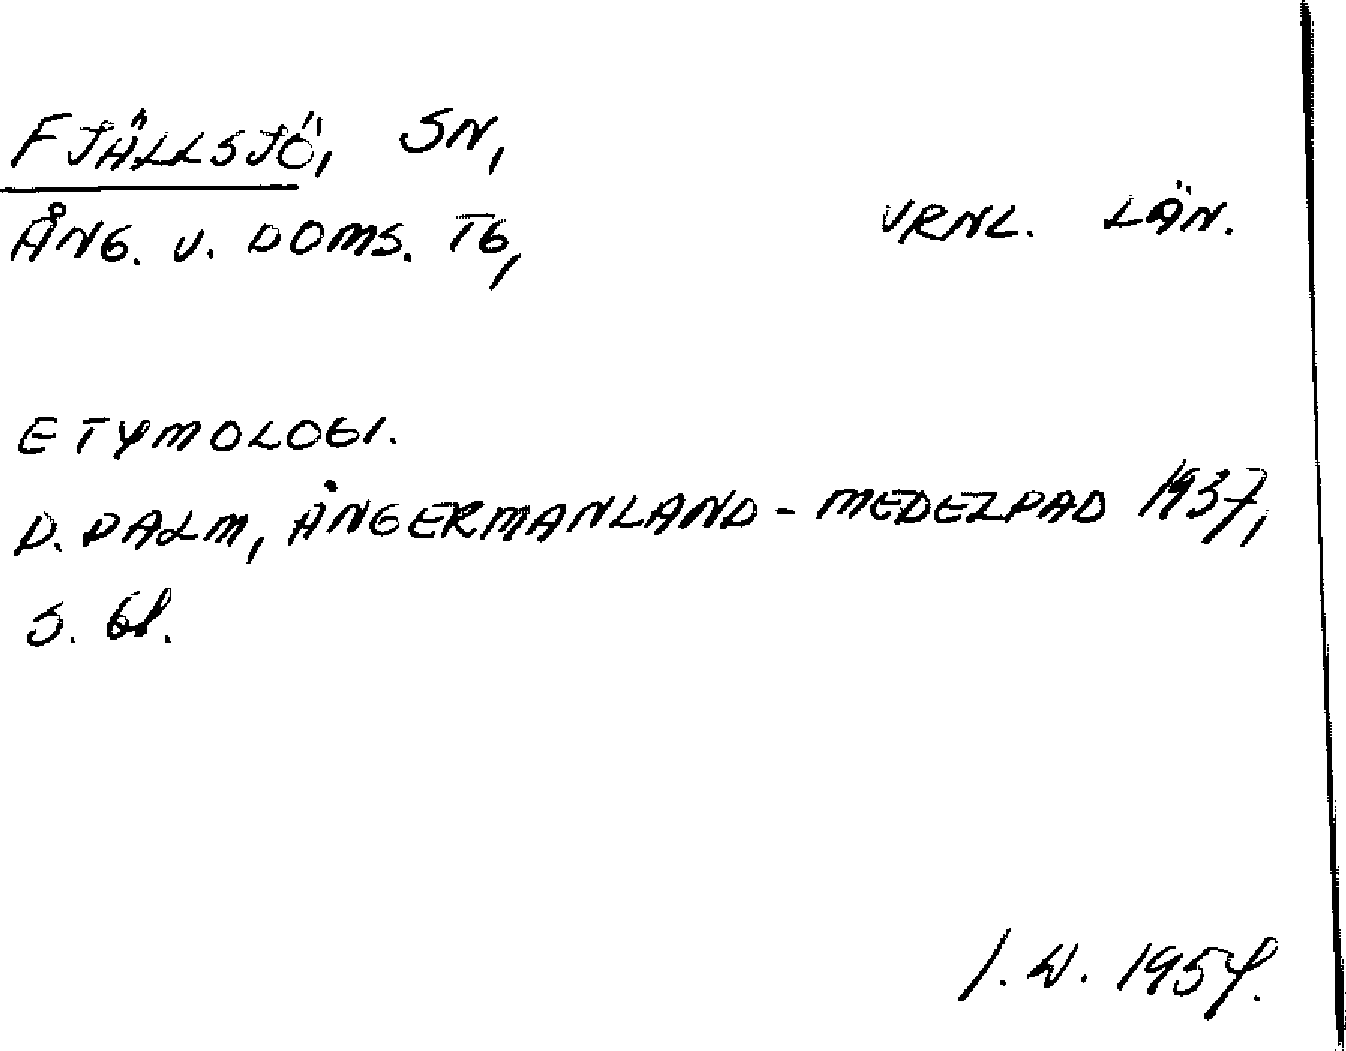 FJÄLLSJÖ, SN,
ÅNG. V. DOMS. TG, VRNL. LÄN.
ETYMOLOGI.
D. DALM, ÅNGERMANLAND - MEDELPAD 1937,
S.
I. W. 1954.